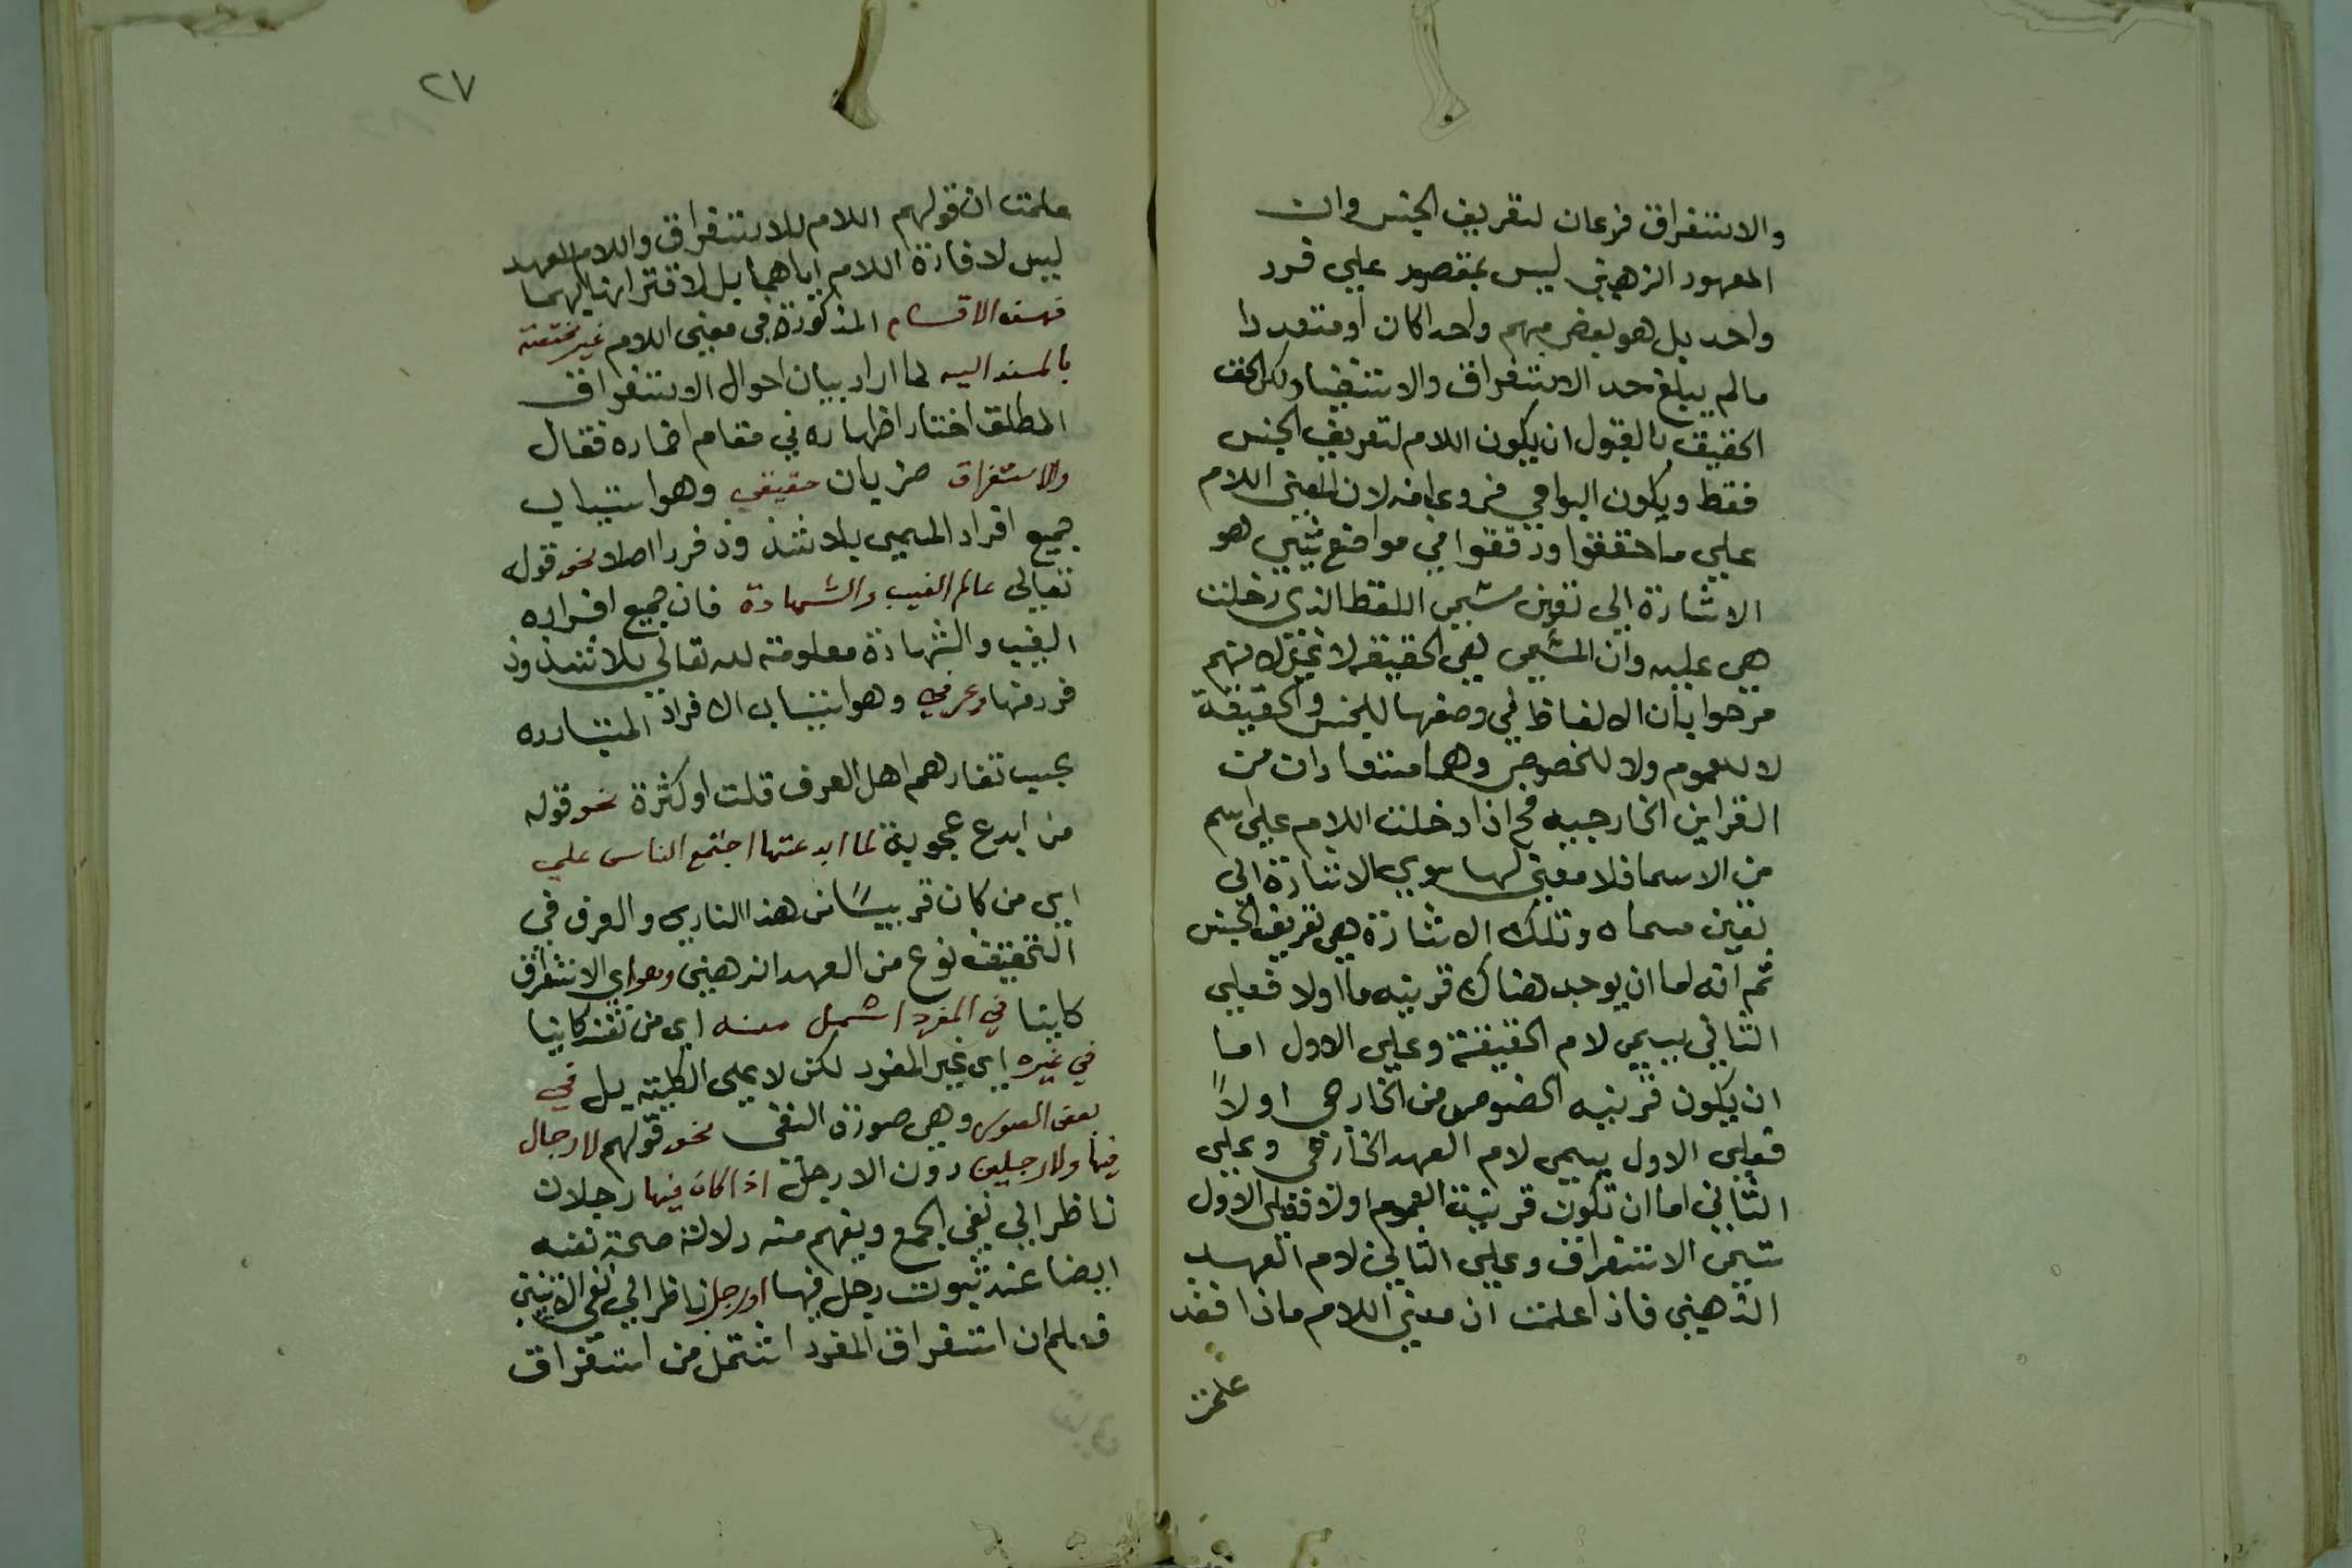 والاستغراق فرعان لتعريف الجنس وان
المعهود الذهني ليس بمقصور علي فرد
واحد بل هو بعض مبهم واحدا كان او متعددا
مالم يبلغ حد الاستغراق ولكن الحق
الحقيق بالقبول ان يكون اللام لتعريف الجنس
فقط ويكون البواقي فروعا منه لان المعني اللام
علي ما حققوا ودققوا في مواضع شتي هو
الاشارة الي تعين مسمي اللفظ الذي دخلت
هي عليه وان المسمي هي الحقيقة لا غير لانهم
صرحوا بان الالفاظ في وضعها للجنس والحقيقة
لا للعموم ولا للخصوص وهما مستفادان من
القراين الخارجيه فح اذا دخلت اللام علي اسم
من الاسما فلا معني لها سوي الاشارة الي
تعين مسماه وتلك الاشارة هي تعريف الجنس
ثم انه اما ان يوجد هناك قرينه ما اولا فعلي
الثاني يسمي لام الحقيقة وعلي الاول اما
ان يكون قرينه الخصوص من الخارجي اولاً
فعلي الاول يسمي لام العهد الخارجي وعلي
الثاني اما ان تكون قرينة العموم اولا فعلي الاول
تسمي الاستغراق وعلي الثاني لام العهد
الذهني فاذا علمت ان معني اللام ماذا فقد
علمت
٢٧
علمت ان قولهم اللام للاستغراق واللام للعهد
ليس لافادة اللام اياهما بل لاقترانها اليهما
فهذه الاقسام المذكورة في معني اللام غير مختصة
بالمسند اليه لما اراد بيان احوال الاستغراق
المطلق اختار اظهاره في مقام اضماره فقال
والاستغراق ضربان حقيقي وهو استيعاب
جميع افراد المسمي بلا شذوذ فرد اصلا نحو قوله
تعالي عالم الغيب والشهادة فان جميع افراده
الغيب والشهادة معلومة لله تعالي بلا شذوذ
فرد منها وعرفي وهو استيعاب الافراد المتبادره
بحسب تفاهم اهل العرف قلت او كثرة نحو قوله
من ابدع عجوبة لما ابدعتها اجتمع الناس علي
اي من كان قريبًا من هذا النادي والعرف في
التحقيق نوع من العهد الذهني وهو اي الاستغراق
كاينا في المفرد اشمل منه اي من نفسه كاينا
في غيره اي غير المفرد لكن لا علي الكلية بل في
بعض الصور وهي صورة النفي نحو قولهم لا رجال
فيها ولا رجلين دون الا رجل اذا كان فيها رجلان
ناظر الي نفي الجمع ويفهم منه دلالة صحة نفيه
ايضا عند ثبوت رجل فيها او رجل ناظر الي نفي الاثنين
فعلم ان استغراق المفرد اشمل من استغراق